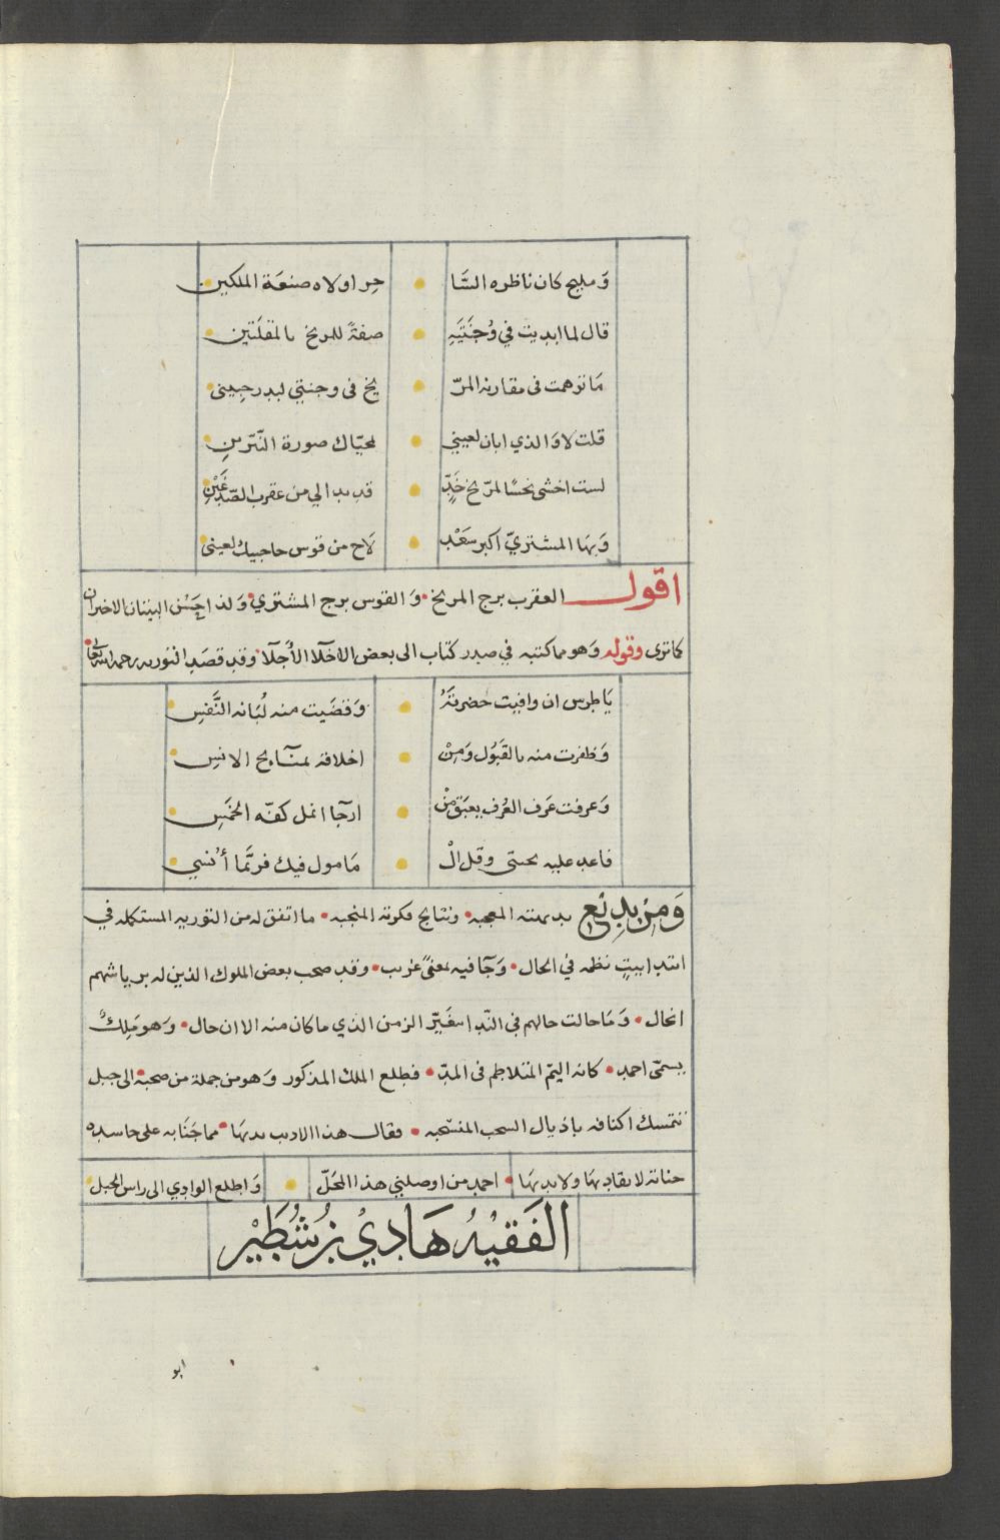 وَمليح كان ناظره السَّا حِر اولاه صنعَة الملكين
قال لما ابديت في وُجْنَتَيَهِ صفةً للمريخ بالمقلَتين
مَا توهمت فى مقارنه المرّ يخ فى وجنتي لبدر جبينى
قلت لا وَالذي ابان لعيني لمحيّاك صورة النّيّرين
لست اخشى نحسًا لمرّيخ خَدٍّ قد بدا لي من عقرب الصّدغَيْن
وَبهَا المشتريّ اكبر سَعْدٍ لَاح من قوس حاجبيك لعينى
اقول العقرب برج المريخ وَ القوس برج المشتري وَلذا حَسُن البيتان الاخيران
كماترى وقوله وَهو مما كتبه في صدر كتاب الى بعض الاخلّا الأجلّا وقد قصَد التوريه رحمه الله تعا
يَا طرس ان وافيت حضرتهُ وَقضَيت منه لُبَانه النَّفسِ
وَظفرت منه بالقَبُول وَمِنْ اخلاقه بمنَآيح الانسِ
وَعرفت عَرف العُرف يعبَق مِنْ ارجَا انمل كفّه الخمَسِ
فاعد عليه تحيتى وقل الْ مَامول فيك فربَّما أُنسي
وَمِنْ بدِيْع بديهته المعجبه ونتايج فكرته المنجبه ما اتفق له من التوريه المستكمله في
ابتدا بيتٍ نظمه في الحال وَجَآ فيه بمعنًى غريب وقد صحب بعض الملوك الذين له بربا شهم
الحال وَمَا حالت حالهم في النّدا بتغيّر الزمن الذي ما كان منه الا ان حال وَهو مَلِكٌ
يسمّى احمد كانه اليمّ المتلاطم فى المدّ فطلع الملك المذكور وَهو من جملة من صحبه الى جبل
تتمسك اكنافه باذيال السحب المنسّحبه فقال هذا الاديب بديهَا مما جَنَا به على حاسده
جناية لا يقاد بهَا ولا يديهَا احمد من اوصلني هذا المحَلّ وَاطلع الوادي الى راس الجبل
الفَقيْهُ هَادِيْ بْزُ شُطَيْر
ابو